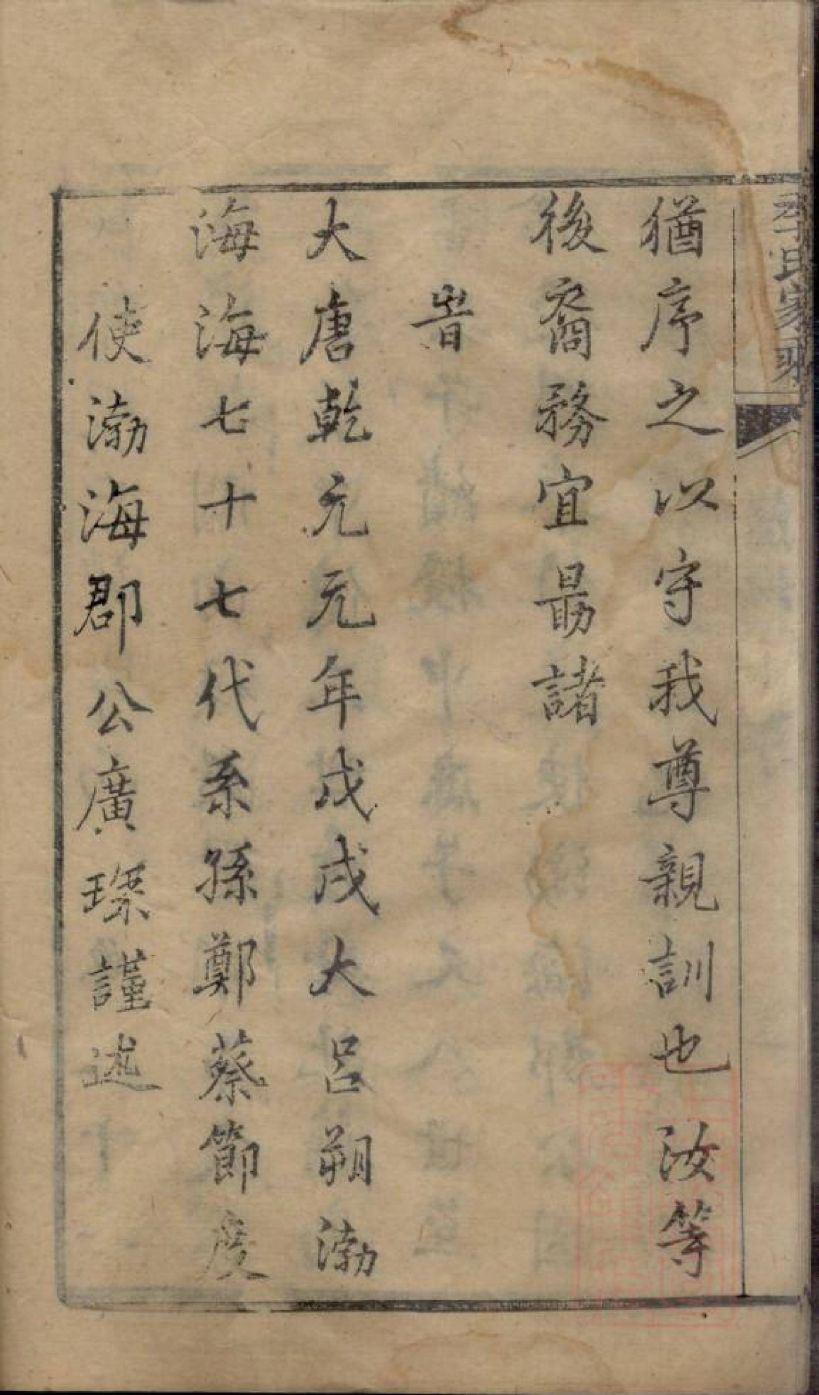 季氏家乘
猶序之以守我尊親訓也汝等
後裔務宜勗諸
旹
大唐乾元元年戊戌大呂朔渤
海海七十七代系孫鄭蔡節度
使渤海郡公廣琛謹述